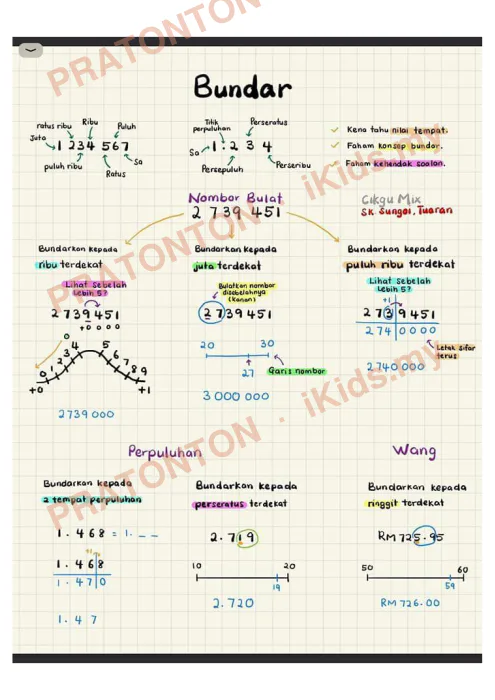 PRATONTON · iKids.my
Bundar
Juta
ratus ribu
Ribu
Puluh
1 234 567
puluh ribu
Ratus
Sa
Titik perpuluhan
Perseratus
Sa
1 . 2 3 4
Persepuluh
Perseribu
✓ Kena tahu nilai tempat.
✓ Faham konsep bundar.
✓ Faham kehendak soalan.
Nombor Bulat
2 739 451
Cikgu Mix
SK. Sungoi, Tuaran
Bundarkan kepada
ribu terdekat
Lihat Sebelah
Lebih 5?
2 739 451
+0 0 0 0
0
0 1 2 3 4 5 6 7 8 9
+0
+1
2739 000
Bundarkan kepada
juta terdekat
Bulatkan nombor
disebelahnya
(kanan)
2 739 451
20 30
27
Garis nombor
3 000 000
Bundarkan kepada
puluh ribu terdekat
Lihat Sebelah
Lebih 5?
+1
2 73 9 451
2 74 0 0 0 0
Letak sifar
terus
2740 000
Perpuluhan
Bundarkan kepada
2 tempat perpuluhan
1 . 468 = 1. _ _
1 . 4 6 8
1 . 4 7 0
1 . 4 7
Bundarkan kepada
perseratus terdekat
2 . 719
10 20
19
2.720
Wang
Bundarkan kepada
ringgit terdekat
RM 725.95
50 60
59
RM 726.00
PRATONTON · iKids.my
PRATONTON · iKids.my